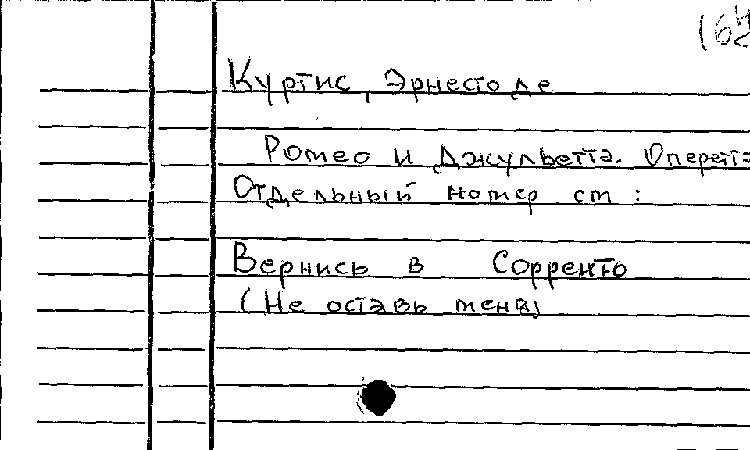 Куртис, Эрнесто де
Ромео и Джульетта. Оперетта
Отдельный номер см :
Вернись в Сорренто
(Не оставь меня)